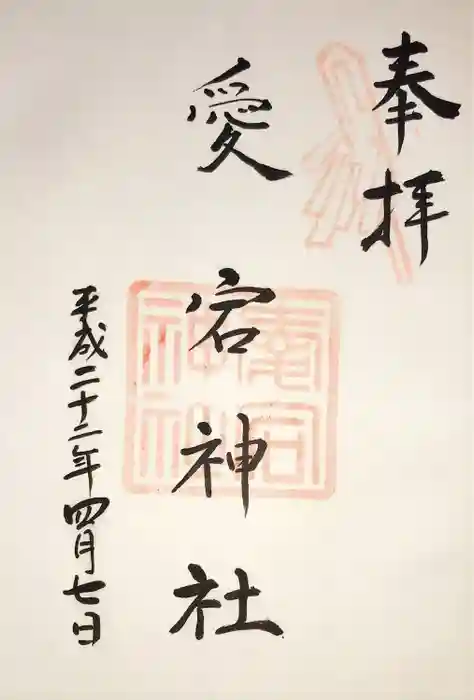 奉拝
愛宕神社
平成二十二年四月七日